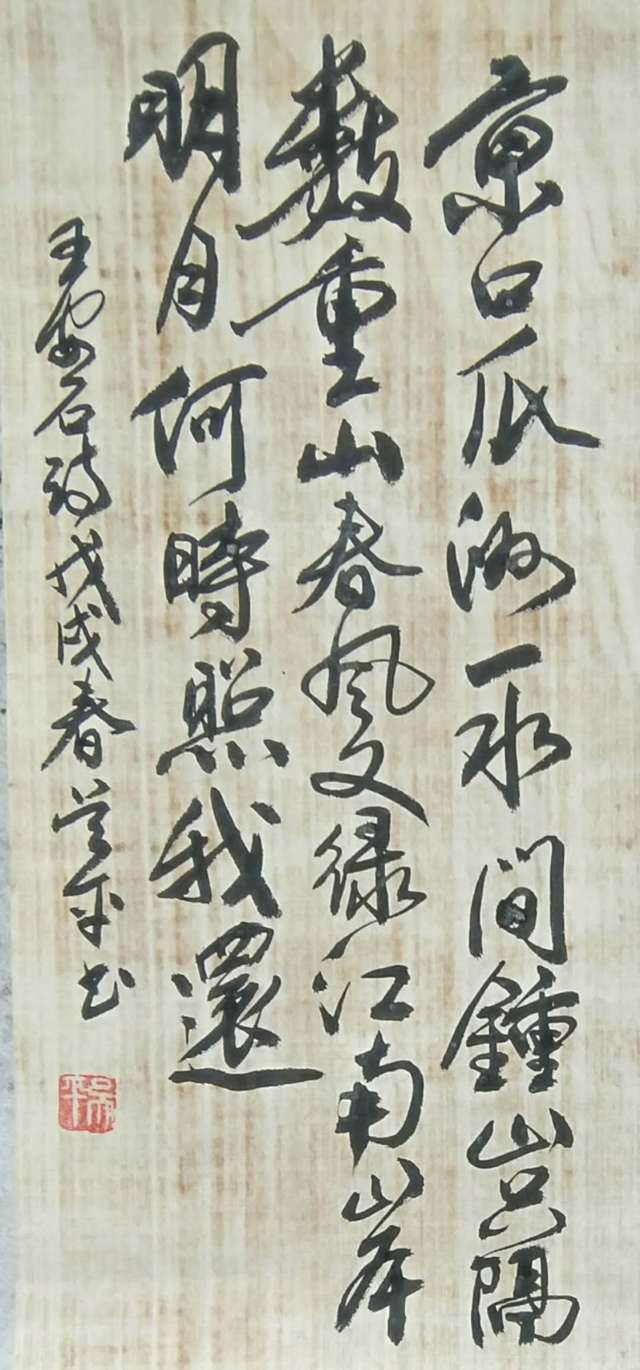 京口瓜洲一水间鍾山只隔
數重山春风又绿江南岸
明月何時照我還
王安石詩戊戌春吴平书